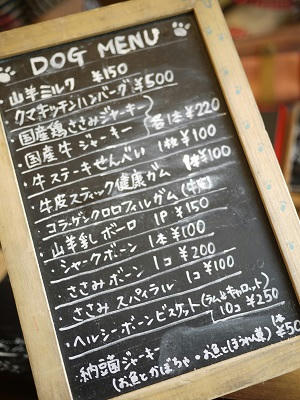 DOG MENU
・山羊ミルク ¥150
・クマキッチンハンバーグ ¥500
・国産鶏ささみジャーキー
・国産牛ジャーキー 各1本¥220
・牛ステーキせんべい 1枚¥100
・牛皮スティック健康ガム 1本¥100
・コラーゲンクロロフィルガム(牛皮)
・山羊乳ボーロ 1P ¥150
・シャークボーン 1本 ¥100
・ささみボーン 1コ ¥200
・ささみスパイラル 1コ ¥100
・ヘルシーボーンビスケット(ラム&キャロット)
10コ ¥250
・納豆菌ジャーキー 1本 ¥50
(お魚とかぼちゃ・お魚とほうれん草)